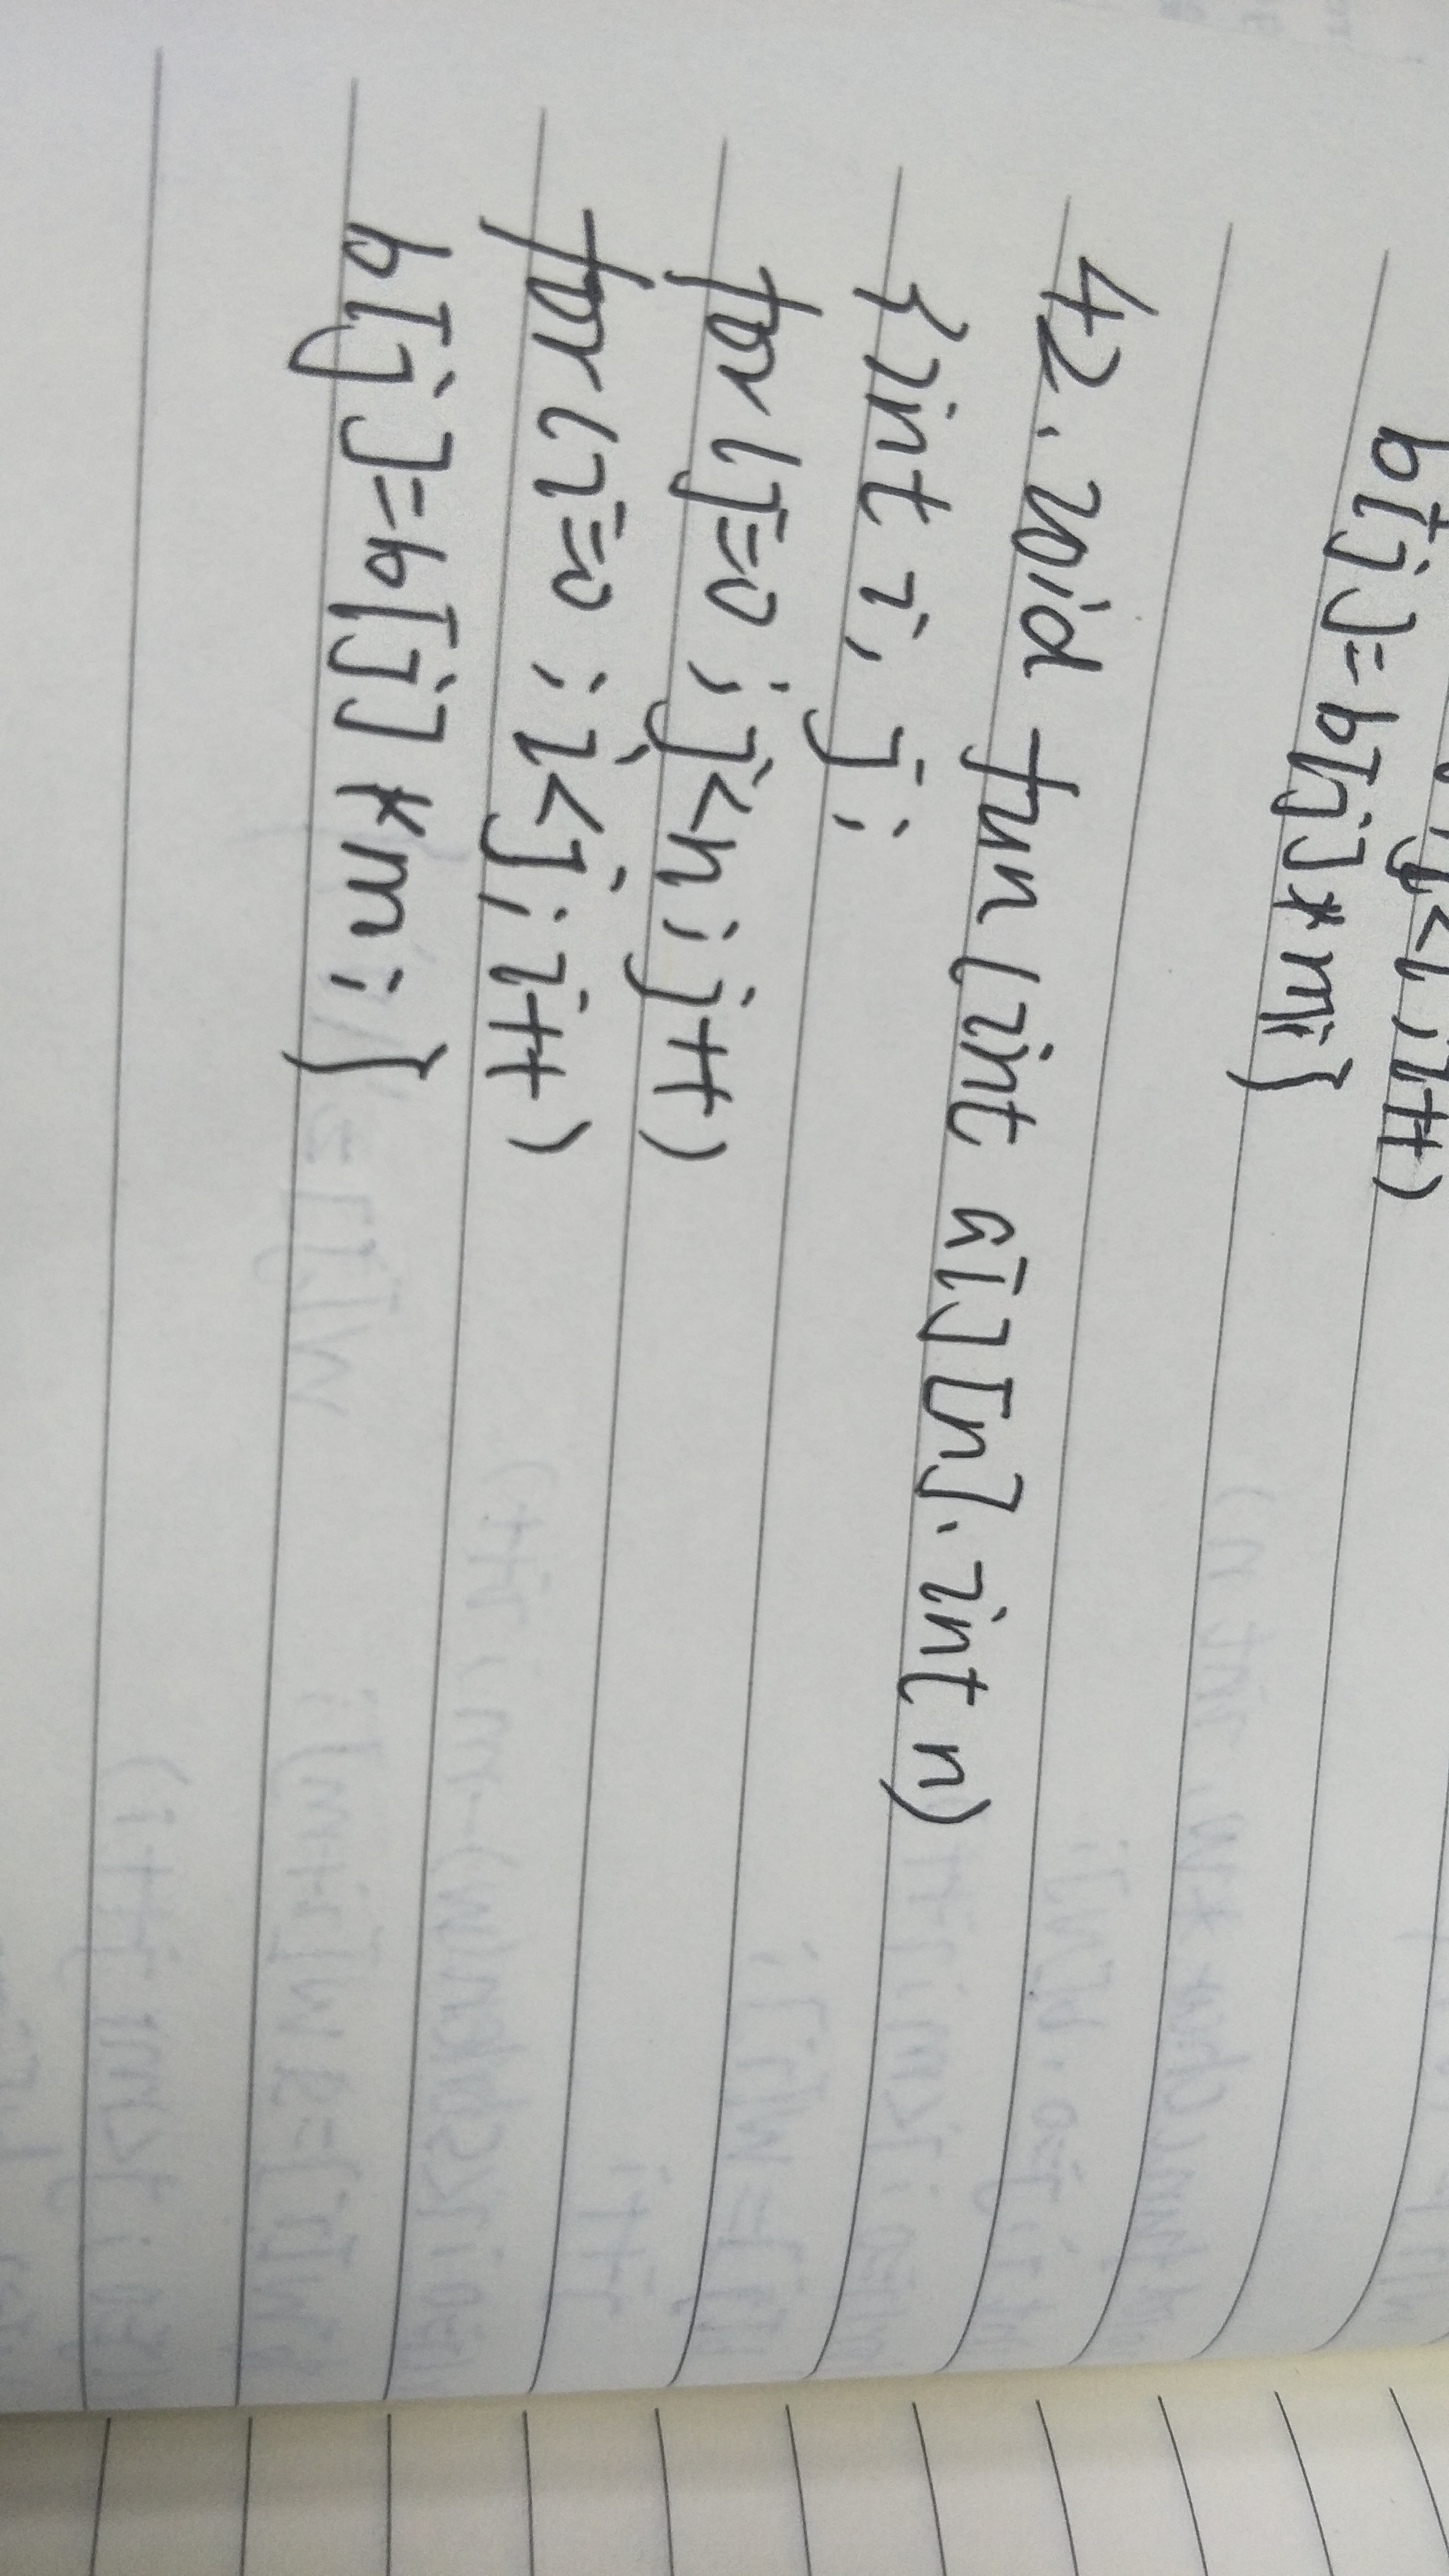 j<i;i++)
b[j]=b[j]*m;}
42. void fun(int a[][n], int n)
{int i, j;
for(j=0;j<n;j++)
for(i=0;i<j;i++)
b[j]=b[j]*m;}